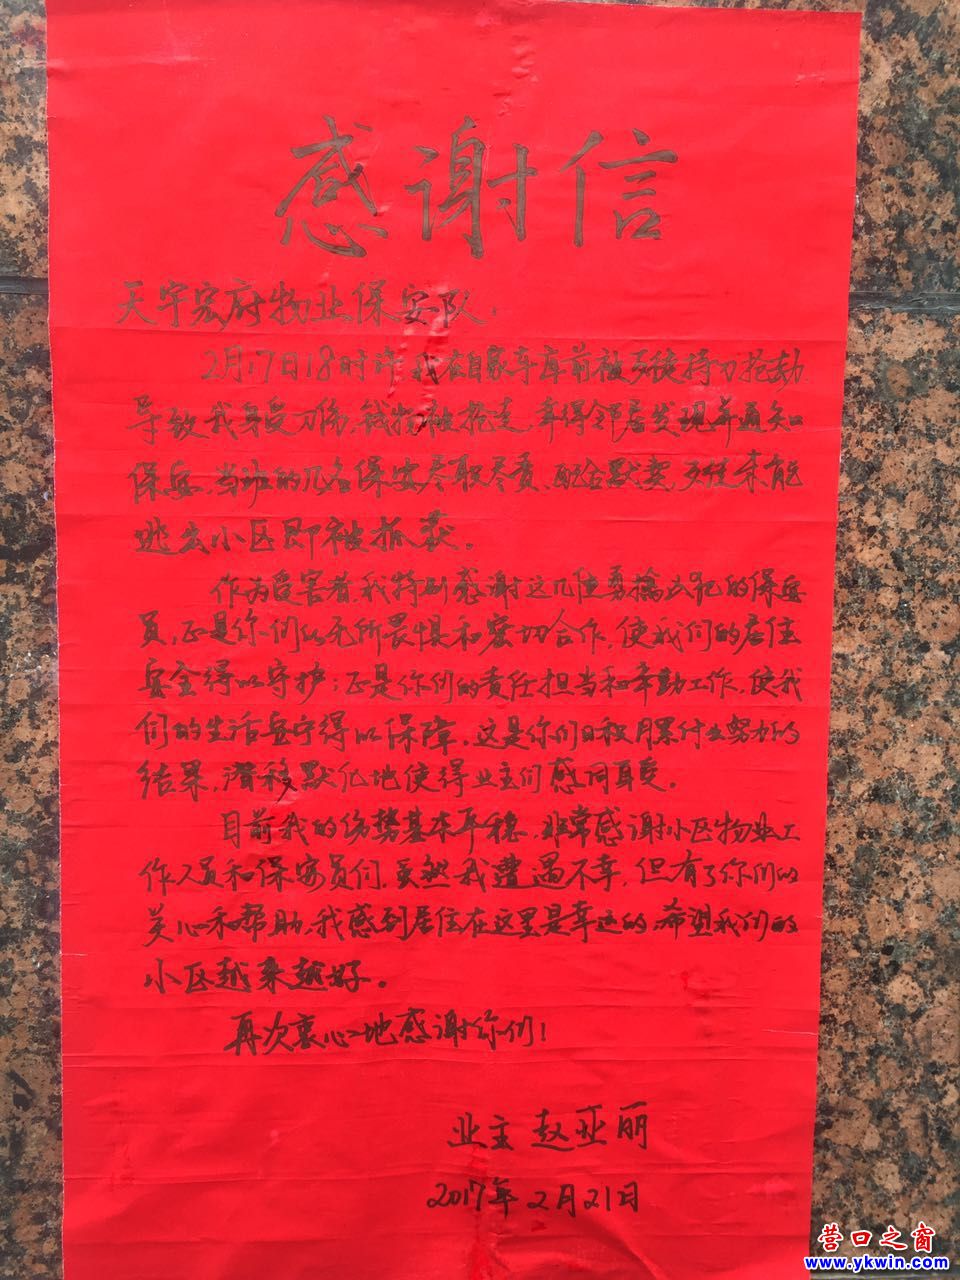 感谢信
天宇宏府物业保安队：
2月17日18时许我在自家车库前被歹徒持刀抢劫,
导致我身受刀伤,钱物被抢走,幸得邻居发现并通知
保安,当班的几名保安尽职尽责、配合默契,歹徒未能
逃出小区即被抓获。
作为受害者,我特别感谢这几位勇擒劫犯的保安
员,正是你们的无所畏惧和密切合作,使我们的居住
安全得以守护;正是你们的责任担当和辛勤工作,使我
们的生活安宁得以保障。这是你们日积月累付出努力的
结果,潜移默化地使得业主们感同身受。
目前我的伤势基本平稳,非常感谢小区物业工
作人员和保安员们,虽然我遭遇不幸,但有了你们的
关心和帮助,我感到居住在这里是幸运的,希望我们的
小区越来越好。
再次衷心地感谢你们!
业主 赵亚丽
2017年2月21日
营口之窗
www.ykwin.com